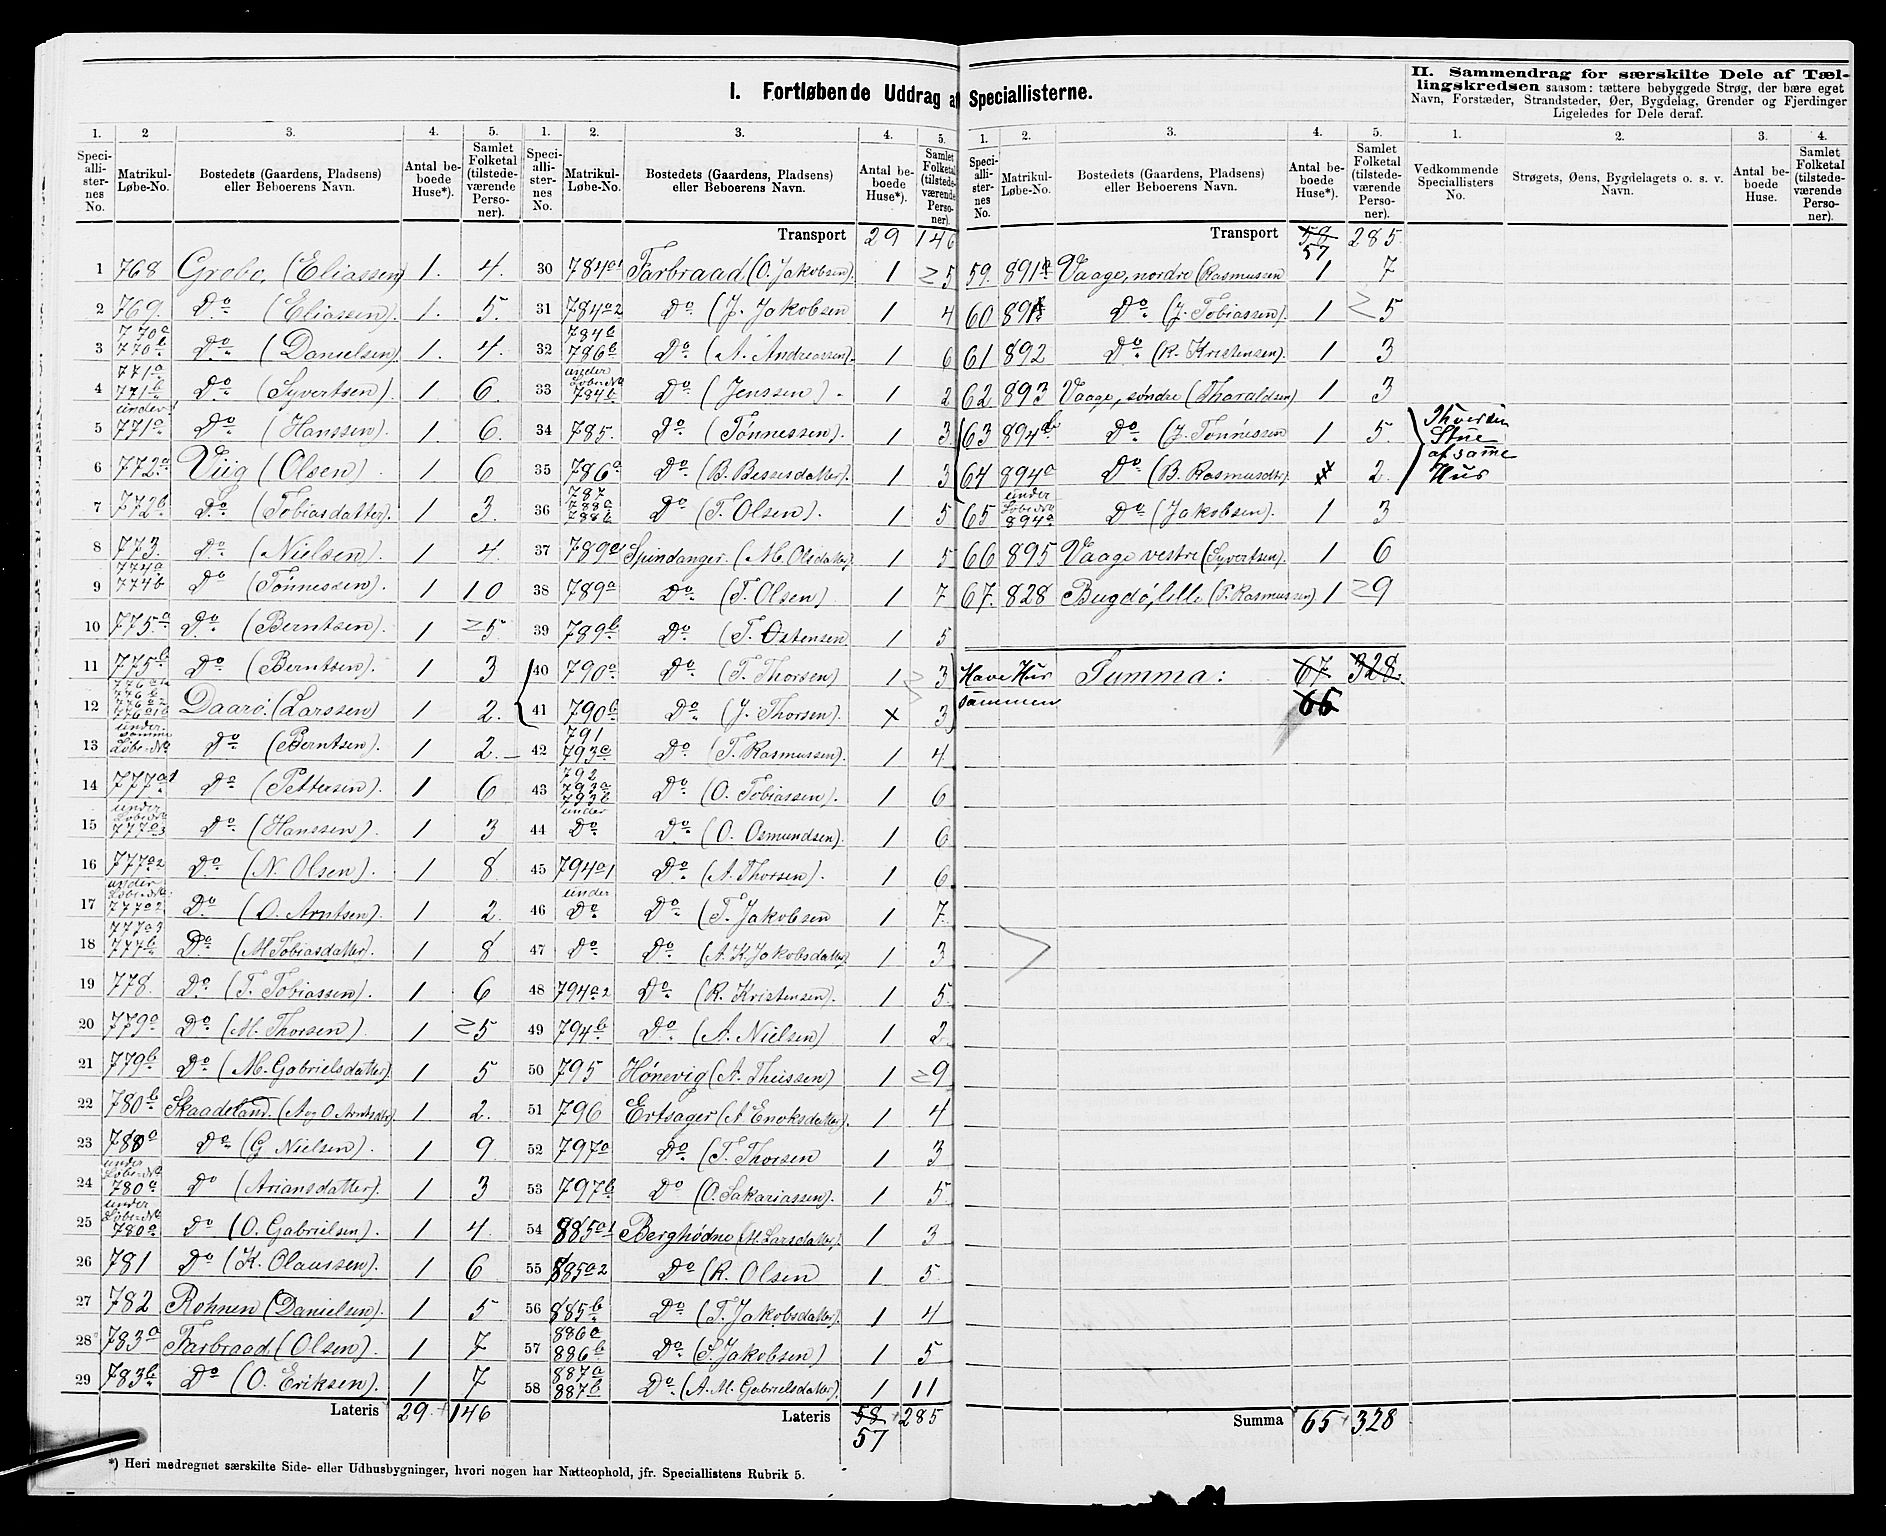 I. Fortløbende Uddrag af Speciallisterne.
II. Sammendrag for særskilte Dele af Tællingskredsen saasom: tættere bebyggede Strøg, der bære eget Navn, Forstæder, Strandsteder, Øer, Bygdelag, Grender og Fjerdinger Ligeledes for Dele deraf.
1. 2 3. 4. 5.
Speciallisternes No. Matrikul-Løbe-No. Bostedets (Gaardens, Pladsens) eller Beboerens Navn. Antal beboede Huse*). Samlet Folketal (tilstedeværende Personer).
1 768 Grebo, (Eliassen) 1. 4.
2 769. Do (Eliassen). 1. 5.
3 770a 770b Do (Danielsen). 1. 4.
4 771a 771b Do (Syvertsen) 1 6.
5 under 771a Do (Hanssen). 1. 6.
6 772a Viig (Olsen) 1. 6
7 772b Do (Tobiasdatter). 1 3.
8 773. Do (Nielsen). 1 4.
9 774a 774b Do (Tönnessen). 1 10
10 775a Do (Berntsen). 1 5
11 775b Do (Berntsen). 1 3
12 Daarö. (Larssen) 1 2.
13 under samme Löbe-No Do (Berntsen). 1 2.
14 777a1 Do (Pettersen). 1 6
15 under Löbe-No 777a3 Do (Hanssen) 1 3
16 777a2 Do (N. Olsen) 1 8
17 under Löbe-No 777a2 Do (O. Arntsen). 1 2.
18 777a3 777b Do (M Tobiasdatter). 1 8
19 778. Do (T. Tobiassen). 1 6
20 779a Do (M. Thorsen) 1 5
21 779b Do (M. Gabrielsdatter) 1 5
22 780b Skaadeland. (A og O Arntsdtr) 1 2.
23 780a Do (G Nielsen). 1 9.
24 under Löbe-No 780a Do (Ariansdatter). 1 3
25 under Löbe-No 780a Do (O. Gabrielsen). 1 4.
26 781 Do (K. Olaussen). 1 6
27 782 Rohnen (Danielsen). 1 5
28 783a Farbraad (Olsen). 1 7
29 783b Do (O. Eriksen). 1 7
Lateris 29 146
1. 2. 3. 4. 5.
Speciallisternes No. Matrikul-Løbe-No. Bostedets (Gaardens, Pladsens) eller Beboerens Navn. Antal beboede Huse*). Samlet Folketal (tilstedeværende Personer).
Transport 29 146
30 784a1 Farbraad (O. Jakobsen). 1 5
31 784a2 Do (J. Jakobsen 1 4
32 784b 786b Do (A. Andreassen). 1 6
33 under Löbe-No 784b Do (Jenssen) 1 2
34 785. Do (Tönnessen). 1 3
35 786a Do (B. Bessesdatter). 1 3
36 787 788a 788b Do (T. Olsen). 1 5
37 789a1 Spindanger. (M. Olsdatter). 1 5
38 789a Do (T. Olsen) 1 7
39 789b Do (T. Östensen 1 5
40 790a Do (T. Thorsen) 1 3 Have Hus
41 790b Do (J. Thorsen). x 3 sammen
42 791 793a Do (T. Rasmussen). 1 4
43 792 793a 793b Do (O. Tobiassen). 1 6
44 under Do Do (O. Osmundsen). 1 6
45 794a1 Do (A. Thorsen). 1 6
46 under Do Do (T. Jakobsen 1 7
47 Do Do (A. K. Jakobsdatter) 1 3
48 794a2 Do (R. Kristensen). 1 5
49 794b Do (A. Nielsen) 1 2
50 795 Hönevig (A. Theissen) 1 9
51 796 Ertsager (A Enoksdatter). 1 4
52 797a Do (T. Thorsen 1 3
53 797b Do (O. Sakariassen). 1 5
54 885a1 Berghödne (M. Larsdatter). 1 3
55 885a2 Do (R. Olsen 1 5
56 885b Do (T. Jakobsdatter) 1 4
57 886a 886b Do (S. Jakobsen) 1 5
58 887a 887b Do (A. M. Gabrielsdatter). 1 11
Lateris 58 285
57
1. 2. 3. 4. 5.
Speciallisternes No. Matrikul-Løbe-No. Bostedets (Gaardens, Pladsens) eller Beboerens Navn. Antal beboede Huse*). Samlet Folketal (tilstedeværende Personer).
Transport 58 285.
57
59. 891 Vaage, nordre (Rasmussen 1 7
60 891 Do (J. Tobiassen). 1 5
61 892 Do (R. Kristensen). 1 3
62 893 Vaage, söndre (Tharaldsen) 1 3
63 894b Do (J. Tönnessen 1 5.
64 894a Do (B. Rasmusdtr). x 2.
Thversin Stue af samme Hus
65 under Löbe-No 894a Do (Jakobsen). 1 3
66 895 Vaage vestre (Syvertsen). 1 6
67. 828 Bugdö, lille (P. Rasmussen) 1 9
Summa: 67 328.
66
Summa 65 328
1. 2. 3. 4.
Vedkommende Speciallisters No. Strøgets, Øens, Bygdelagets o. s. v. Navn. Antal beboede Huse. Samlet Folketal (tilstedeværende Personer).
*) Heri medregnet særskilte Side- eller Udhusbygninger, hvori nogen har Natteophold, jfr. Speciallistens Rubrik 5.